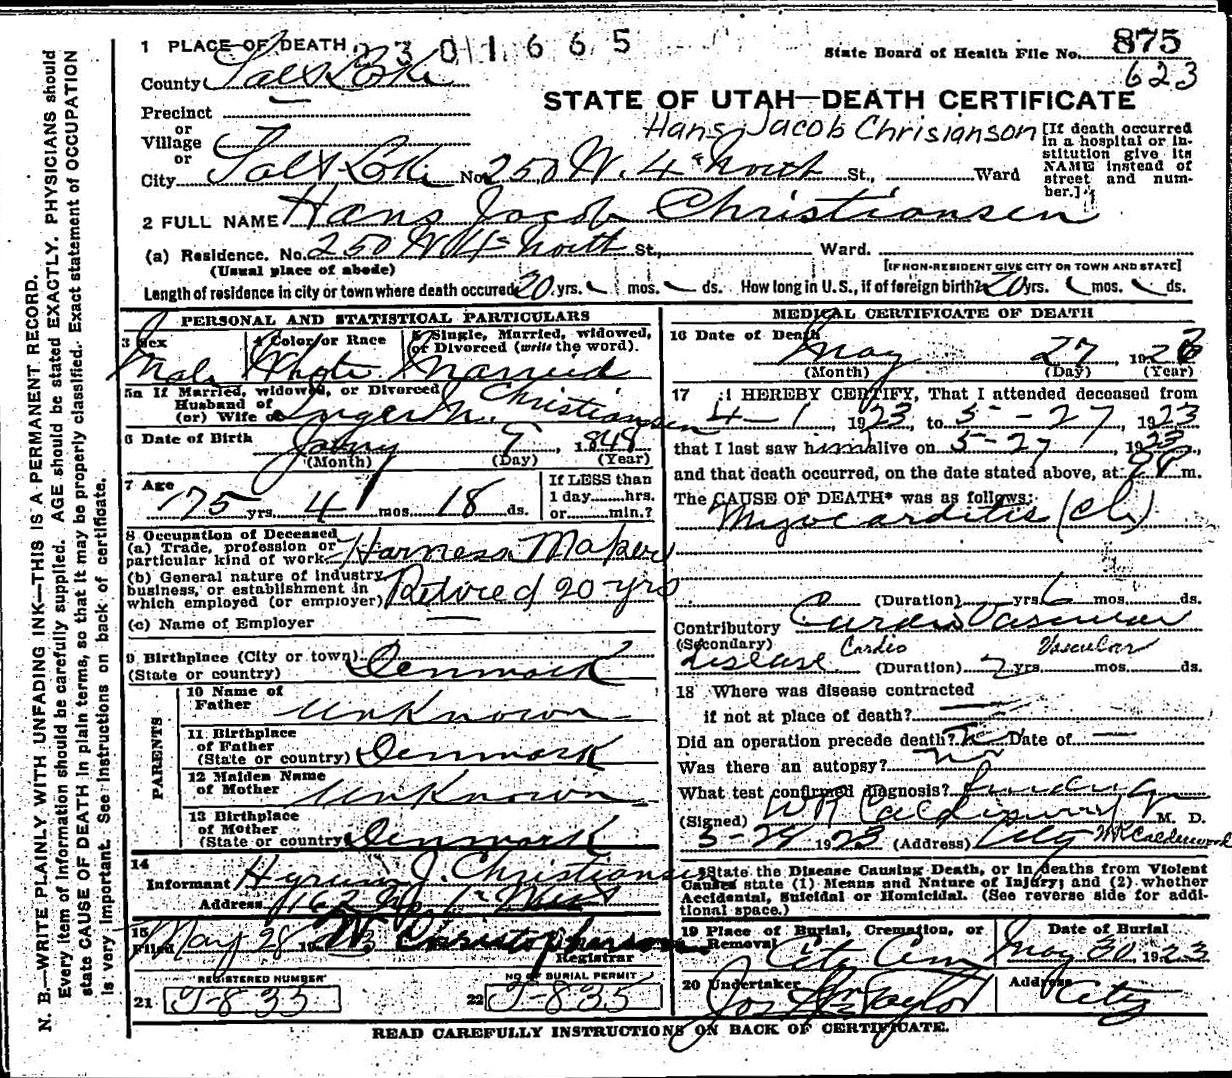 1 PLACE OF DEATH 2301665
State Board of Health File No. 875
623
County Salt Lake
STATE OF UTAH—DEATH CERTIFICATE
Precinct
or
Village
or
City Salt Lake No. 250 W. 4th North St., Ward
Hans Jacob Chrisianson
[If death occurred in a hospital or institution give its NAME instead of street and number.]
2 FULL NAME Hans Jacob Christiansen
(a) Residence. No. 250 W 4th North St., Ward.
(Usual place of abode) [IF NON-RESIDENT GIVE CITY OR TOWN AND STATE]
Length of residence in city or town where death occured 20 yrs. mos. ds. How long in U.S., if of foreign birth? 20 yrs. mos. ds.
PERSONAL AND STATISTICAL PARTICULARS
3 Sex
Male
4 Color or Race
White
5 Single, Married, widowed, or Divorced (write the word).
Married
5a If Married, widowed, or Divorced
Husband of
(or) Wife of Inger M. Christiansen
6 Date of Birth
Jany 9, 1848
(Month) (Day) (Year)
7 Age
75 yrs. 4 mos. 18 ds.
If LESS than
1 day hrs.
or min.?
8 Occupation of Deceased
(a) Trade, profession or particular kind of work Harness Maker
(b) General nature of industry, business, or establishment in which employed (or employer) Retired 20 yrs
(c) Name of Employer
9 Birthplace (City or town)
(State or country) Denmark
PARENTS
10 Name of Father Unknown
11 Birthplace of Father (State or country) Denmark
12 Maiden Name of Mother Unknown
13 Birthplace of Mother (State or country) Denmark
14
Informant Hyrum J. Christiansen
Address
15
Filed May 28 1923 Christopherson
Registrar
REGISTERED NUMBER
21 T-835
NO OF BURIAL PERMIT
22 T-835
MEDICAL CERTIFICATE OF DEATH
16 Date of Death
May 27 1923
(Month) (Day) (Year)
17 I HEREBY CERTIFY, That I attended deceased from
4-1, 1923, to 5-27, 1923
that I last saw him alive on 5-27, 1923,
and that death occurred, on the date stated above, at m.
The CAUSE OF DEATH* was as follows:
Myocarditis (ch)
(Duration) yrs. 6 mos. ds.
Contributory Cardio Vascular
(Secondary)
disease Cardio Vascular
(Duration) 2 yrs. mos. ds.
18 Where was disease contracted
if not at place of death?
Did an operation precede death? No Date of —
Was there an autopsy? no
What test confirmed diagnosis?
(Signed) M. D.
5-29 1923 (Address) City WR Calderwood
*State the Disease Causing Death, or in deaths from Violent Causes state (1) Means and Nature of Injury; and (2) whether Accidental, Suicidal or Homicidal. (See reverse side for additional space.)
19 Place of Burial, Cremation, or Removal
City Cem
Date of Burial
May 30, 1923
20 Undertaker
Jos Taylor
Address
City
READ CAREFULLY INSTRUCTIONS ON BACK OF CERTIFICATE.
N. B.—WRITE PLAINLY WITH UNFADING INK—THIS IS A PERMANENT RECORD.
Every item of Information should be carefully supplied. AGE should be stated EXACTLY. PHYSICIANS should
state CAUSE OF DEATH in plain terms, so that it may be properly classified. Exact statement of OCCUPATION
is very important. See Instructions on back of certificate.